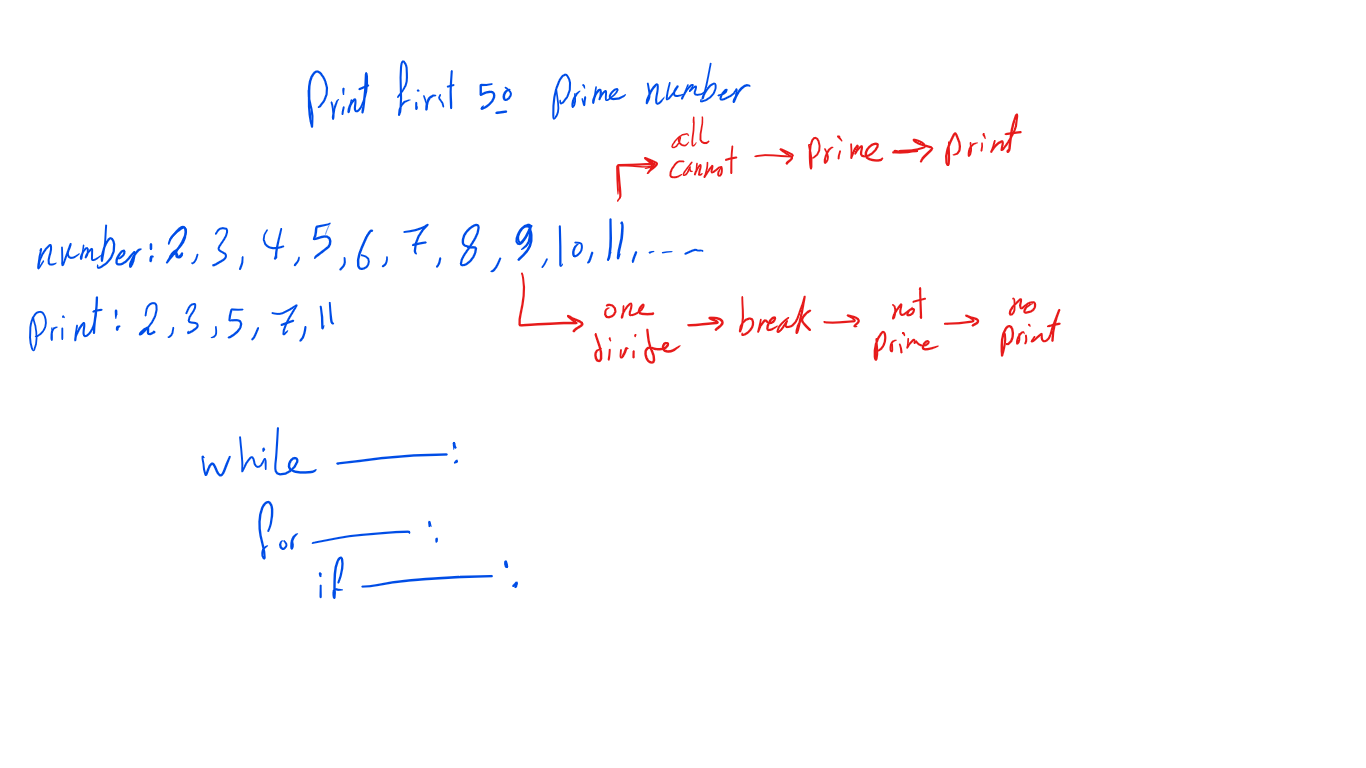 Print first 50 Prime number
all
cannot → Prime → Print
number: 2, 3, 4, 5, 6, 7, 8, 9, 10, 11, ---
Print: 2, 3, 5, 7, 11
one
divide → break → not
prime → no
print
while ———:
for ———:
if ———: